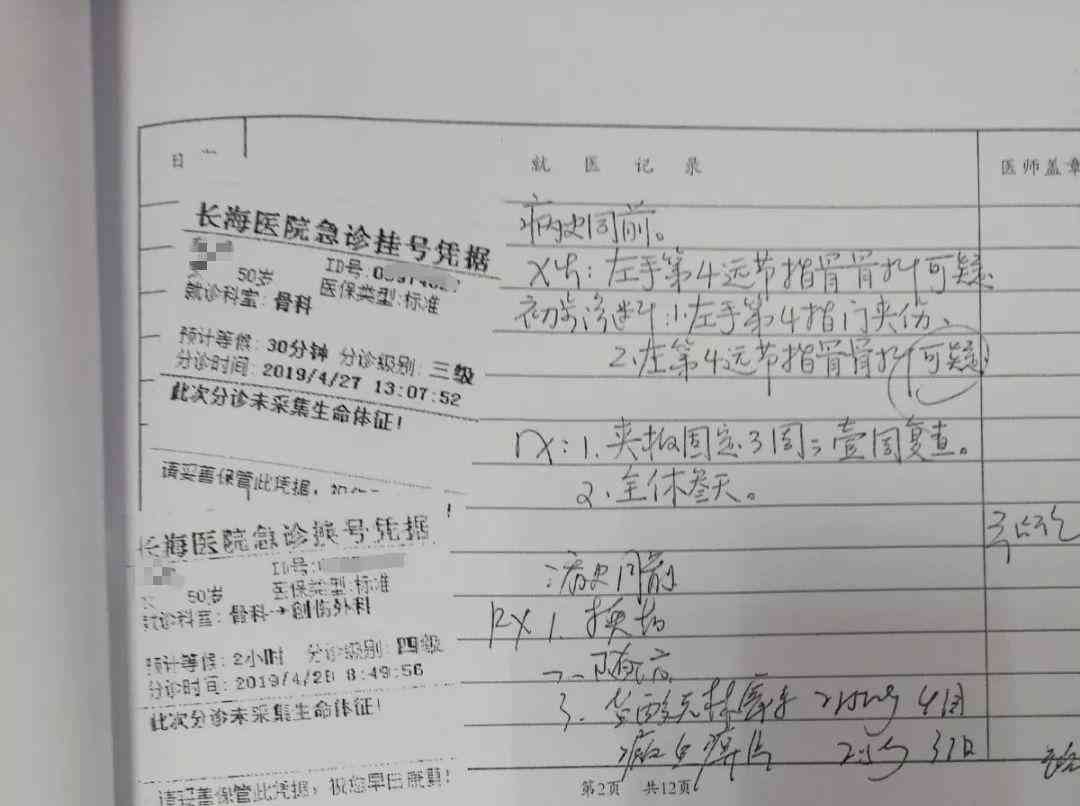 日
就 医 记 录
医师盖章
长海医院急诊挂号凭据
50岁 ID号:
就诊科室: 骨科 医保类型:标准
预计等候: 30分钟 分诊级别: 三级
分诊时间: 2019/4/27 13:07:52
此次分诊未采集生命体征!
请妥善保管此凭据,
病史同前。
X片: 左手第4远节指骨骨折可疑
初步诊断: 1.左手第4指门夹伤、
2.左第4远节指骨骨折可疑
rx: 1. 夹板固定3周; 壹周复查。
2. 全休叁天。
长海医院急诊挂号凭据
ID号:
50岁 医保类型:标准
就诊科室: 骨科→创伤外科
预计等候: 2小时 分诊级别: 四级
分诊时间: 2019/4/28 8:49:56
此次分诊未采集生命体征!
请妥善保管此凭据, 祝您早日康复!
病史同前
RX 1. 换药
3.
第2页 共12页